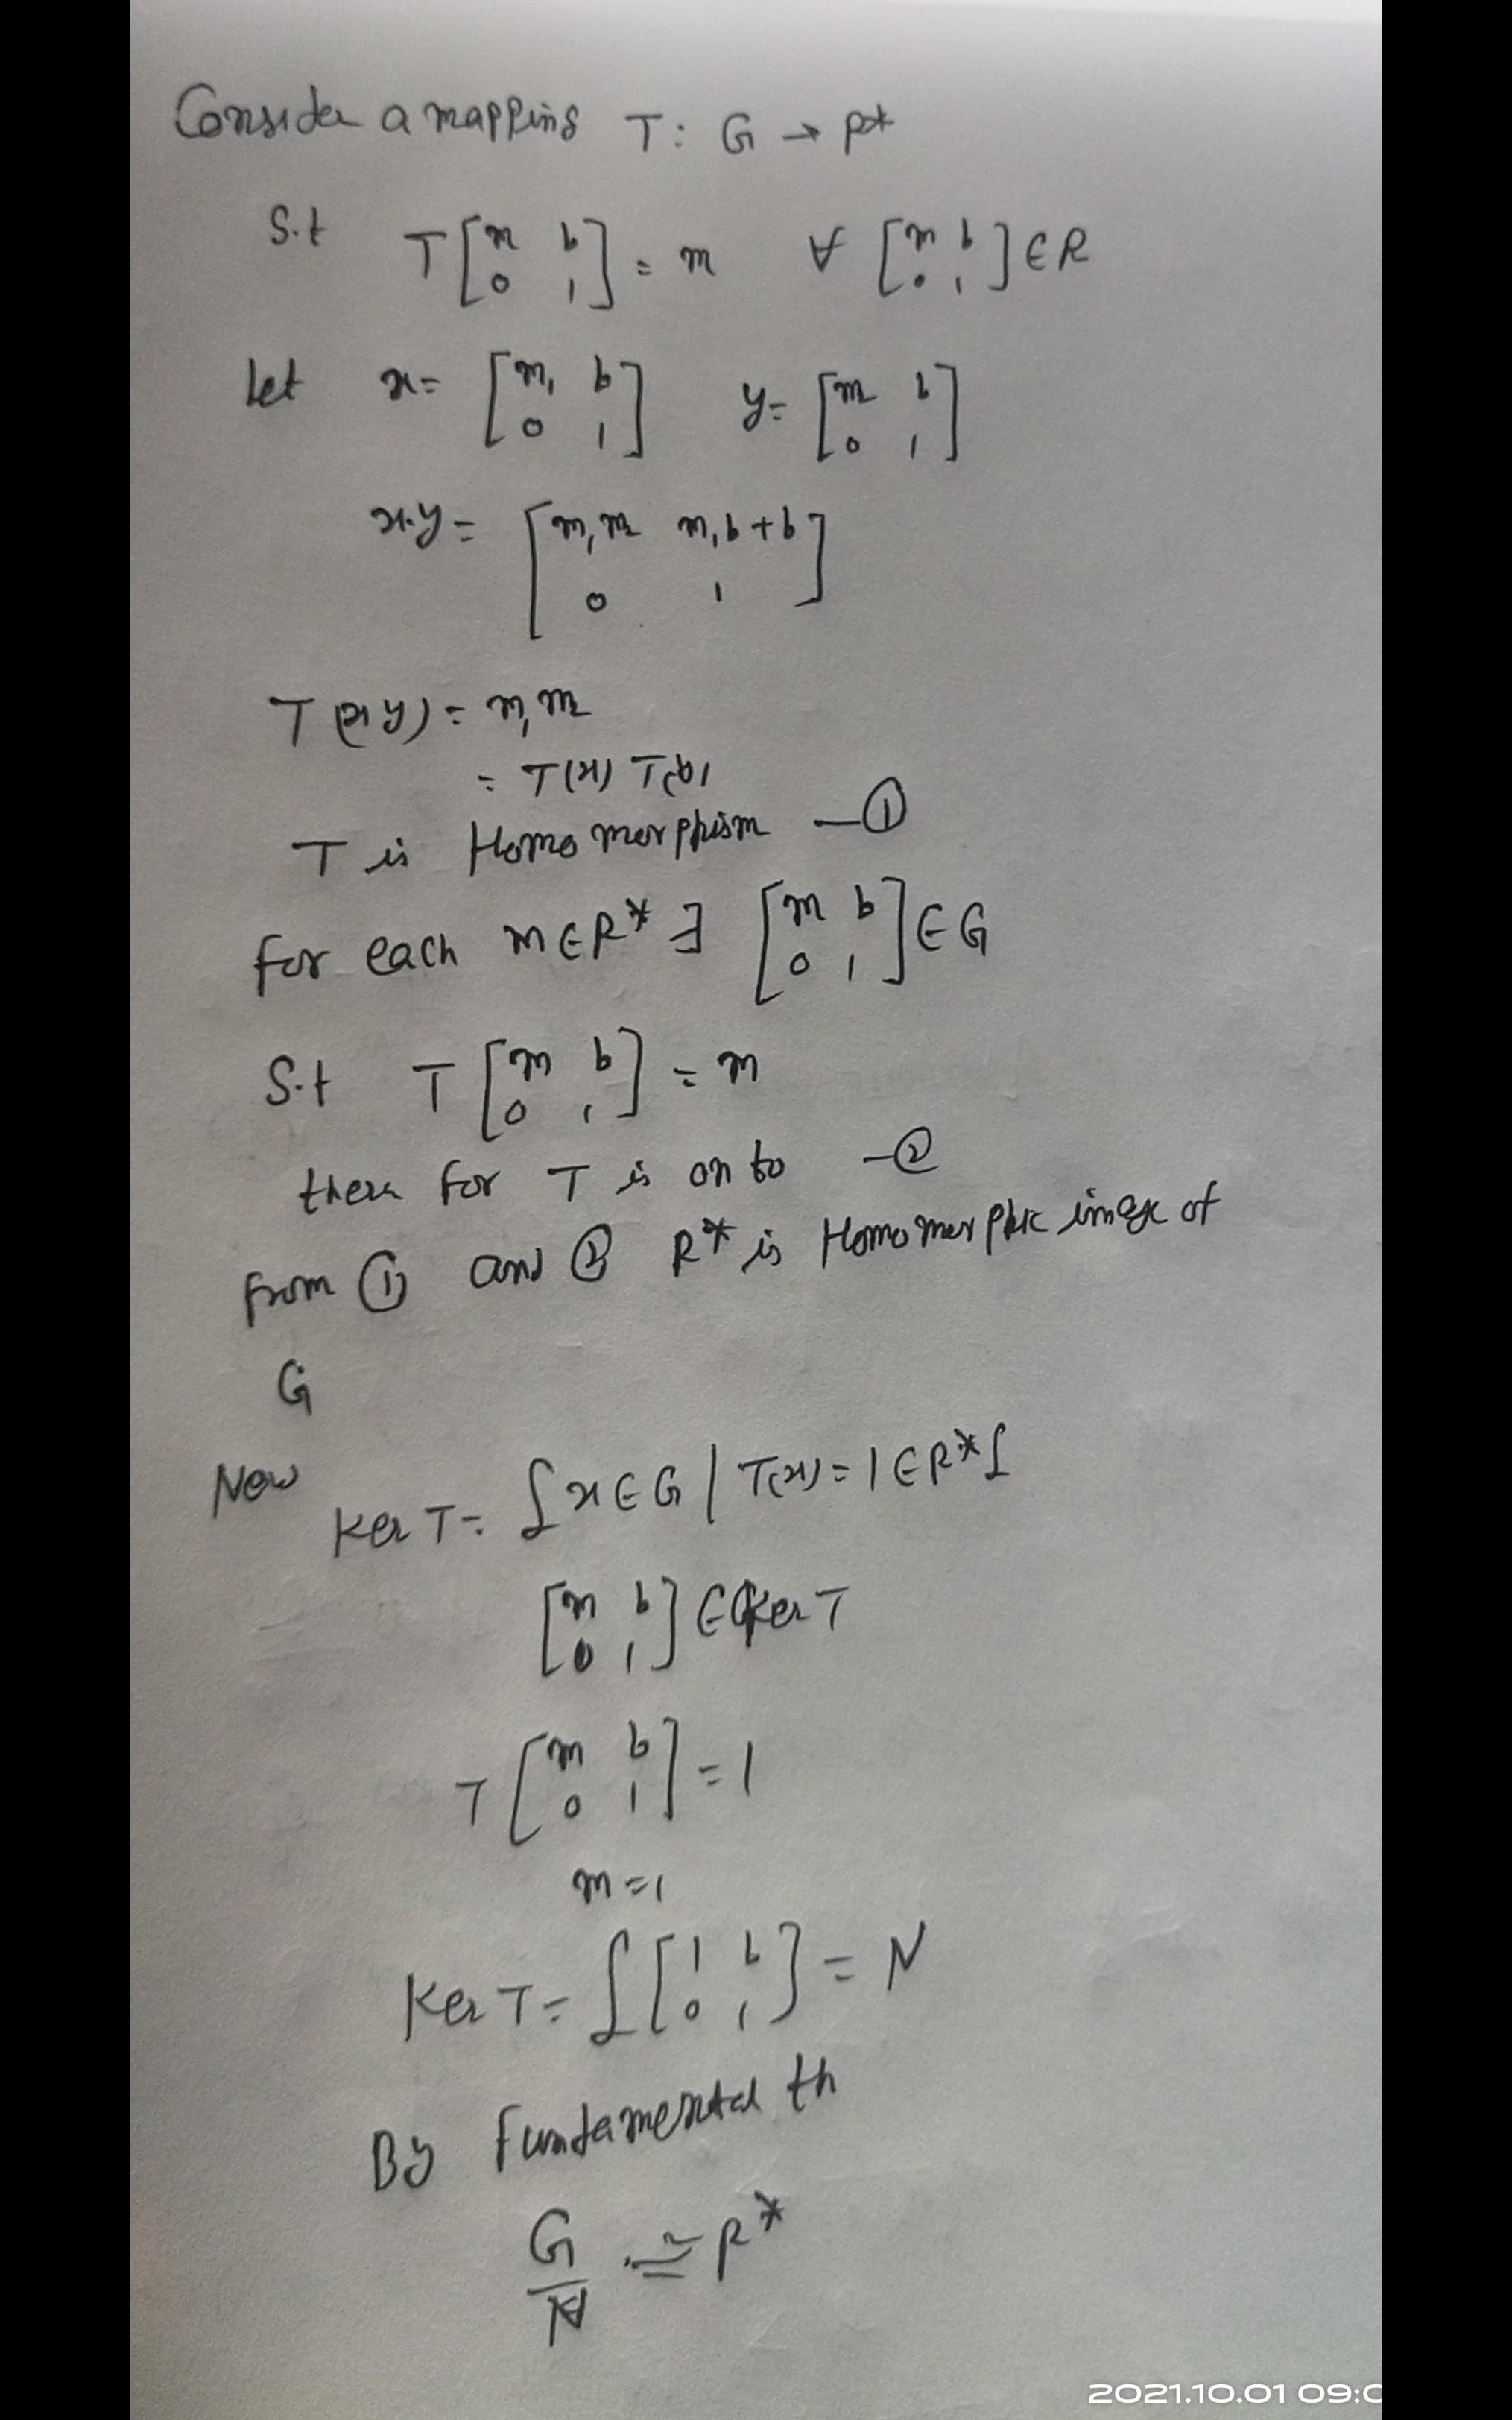 Consider a mapping T: G → R*
S.t T[m b
0 1] = m ∀ [m b
0 1] ∈ R
Let x= [m₁ b
0 1] y= [m₂ b
0 1]
x.y = [m₁m₂ m₁b+b
0 1]
T(xy) = m₁m₂
= T(x) T(y)
T is Homomorphism —①
for each m∈R* ∃ [m b
0 1] ∈ G
S.t T [m b
0 1] = m
there for T is on to —②
from ① and ② R* is Homomorphic image of
G
Now
Ker T = {x∈G | T(x) = 1 ∈ R*}
[m b
0 1] ∈ Ker T
T [m b
0 1] = 1
m = 1
Ker T = {[1 b
0 1]} = N
By Fundamental th
G/N ≅ R*
2021.10.01 09:0